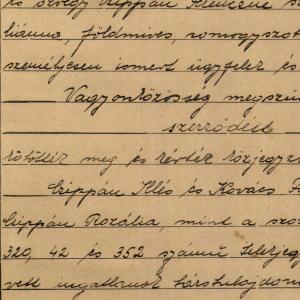 és özvegy Czippán Ferencné sz
liánna, földmives, somogyszob
személyesen ismert ügyfelek és
Vagyonközösség megszün
szerződést
kötötték meg és kérték közjegyző
Czippán Illés és Kovács F
Czippán Rozália, mint a szo
320, 42 és 352 számú telekjegy
vett ingatlanok társtulajdono